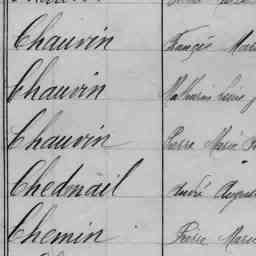 Chauvin François Marie
Chauvin Mathurin Louis
Chauvin Pierre Marie
Chedmail André
Chemin Pierre Marie